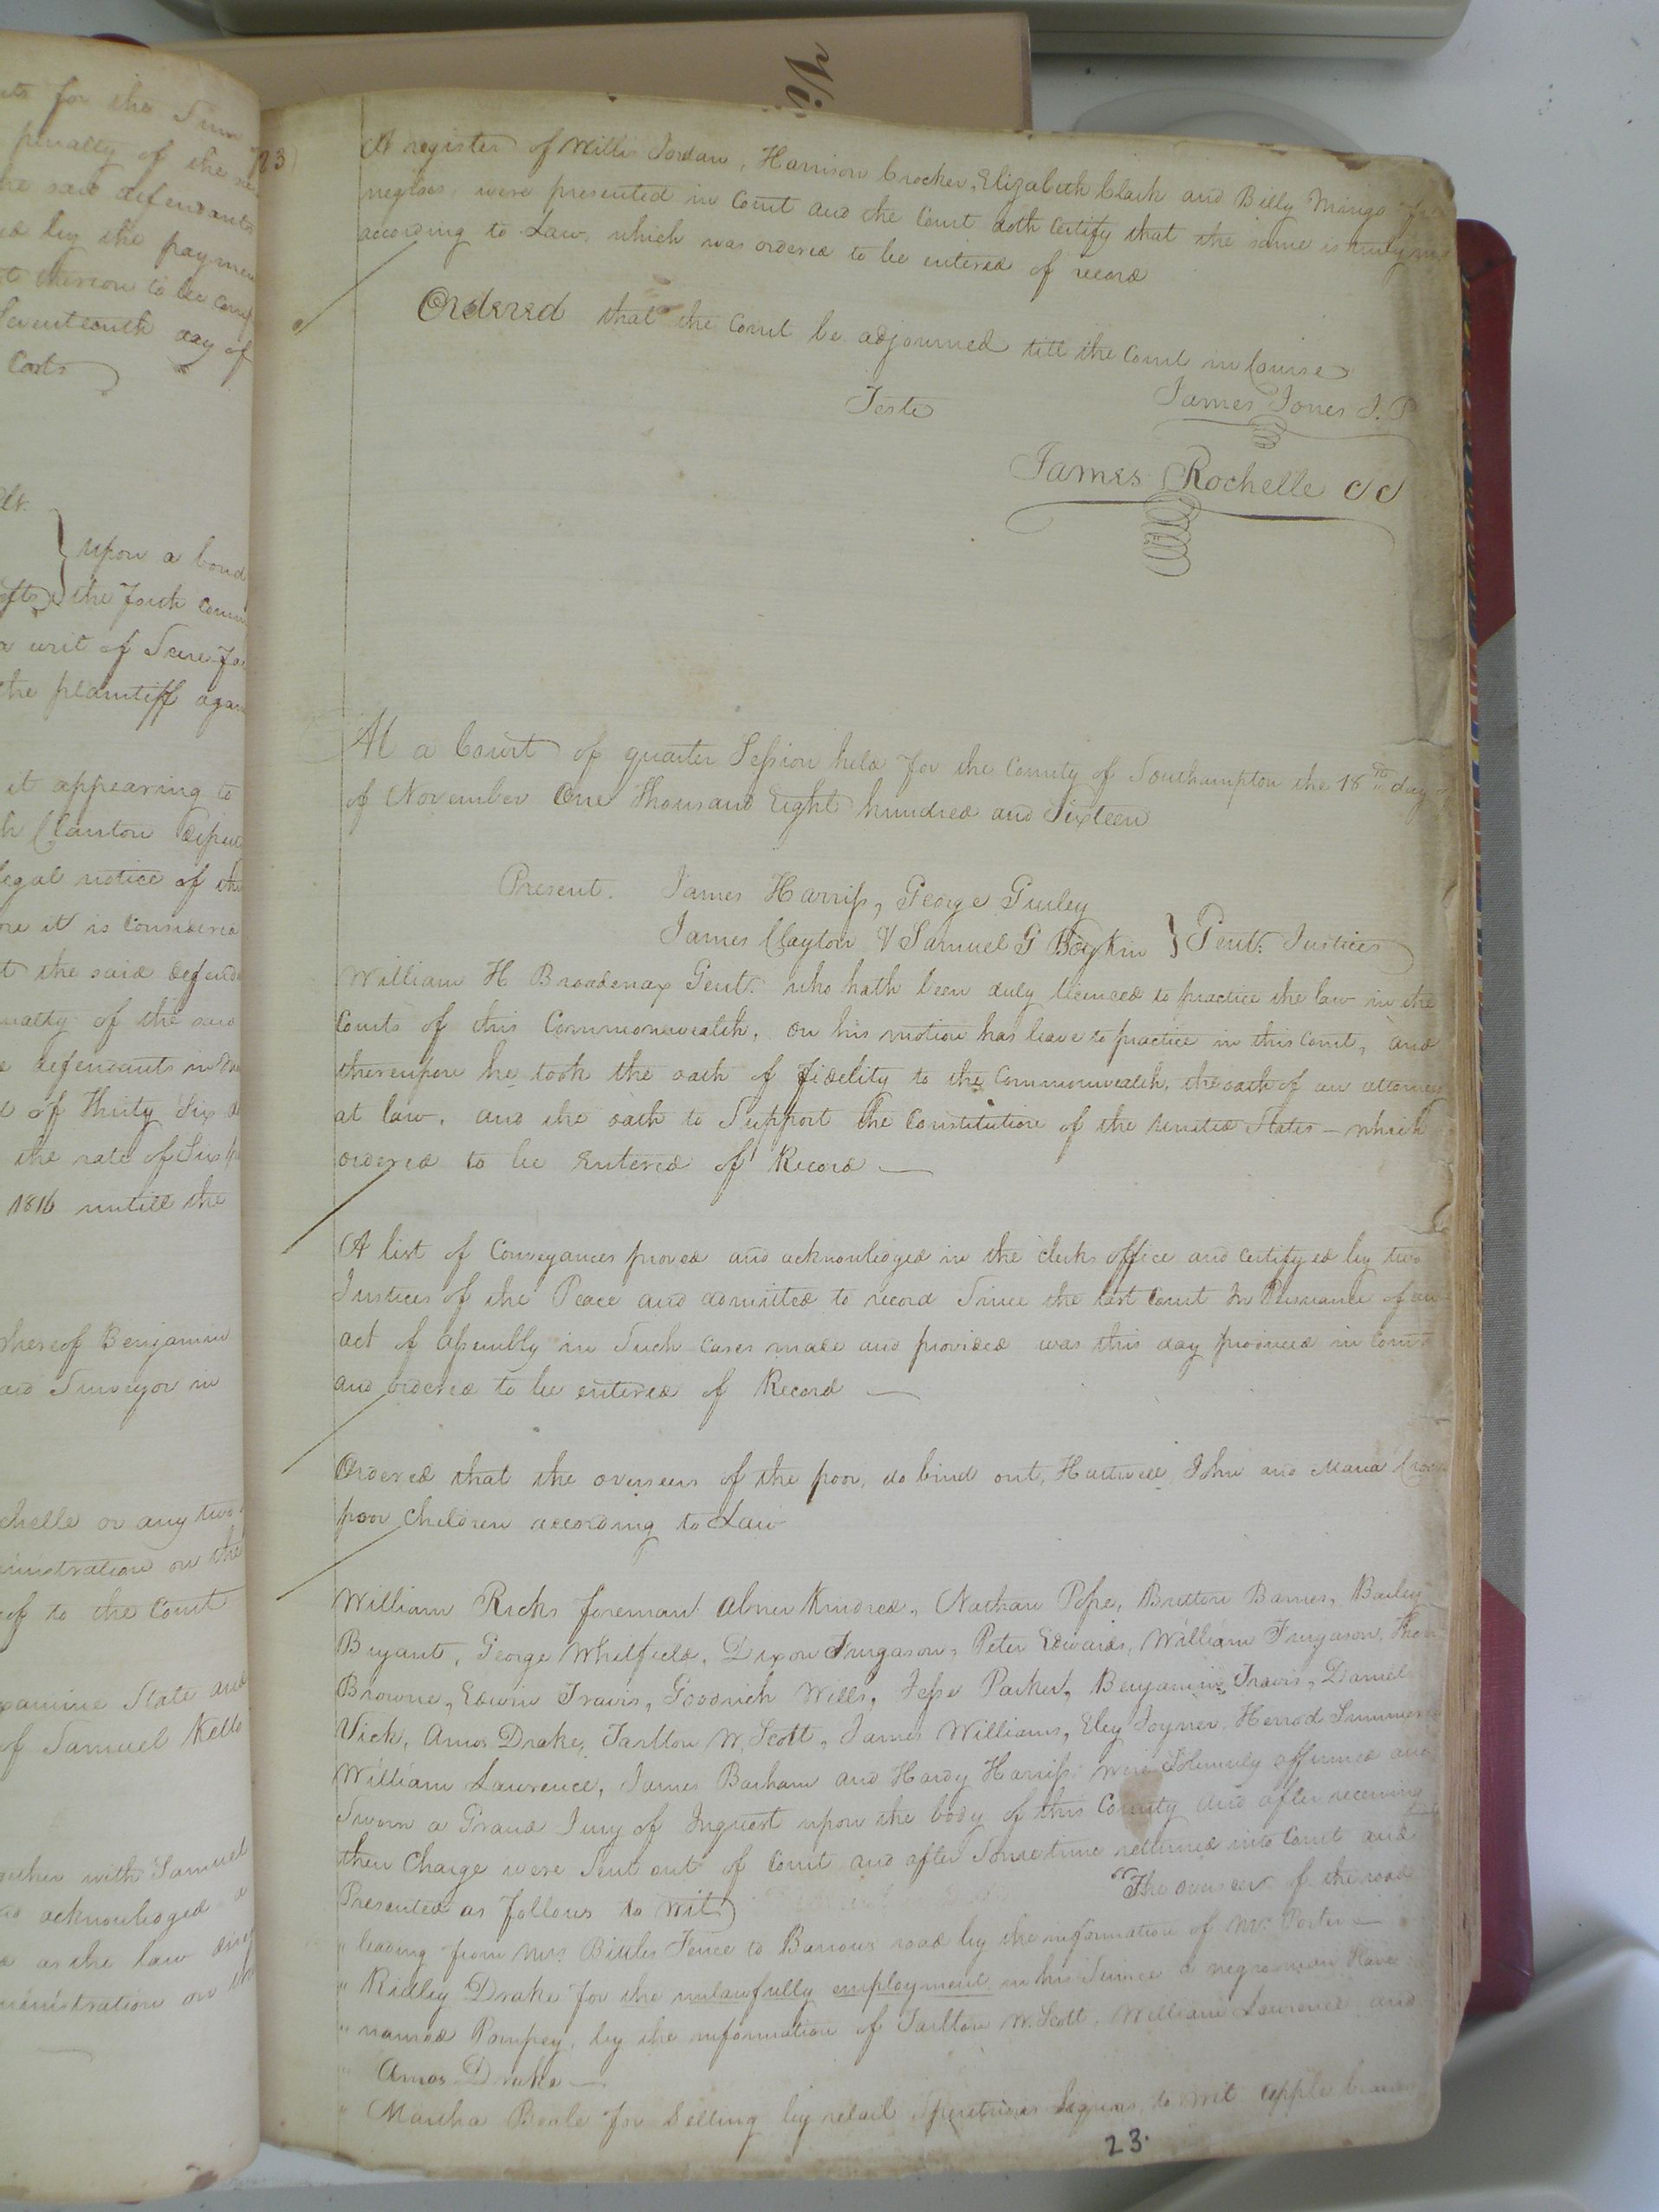 Vi
nts for the Sum
penalty of the
the said defendants
ed by the paymen
t thereon to be
Seventeenth day of
Costs
upon a bond
the forth
a writ of Scire fa
the plaintiff again
it appearing to
h Clanton
legal notice of the
re it is Considered
t the said defend
nalty of the said
e defendants in
d of thirty Six
the rate of Six
1816 untill the
thereof Benjamin
aid Surveyor in
chelle or any two
ministration on the
of to the Court
xamine State and
of Samuel Kello
gether with Samuel
acknowledged
as the law
ministration on the
23)
A register of Willis Jordan, Harrison Crocker, Elizabeth Clark and Billy Mingo
negroes, were presented in Court and the Court doth Certify that the same is truly
according to Law, which was ordered to be entered of record
Ordered that the Court be adjourned till the Court in Course
Teste James Jones J. P
James Rochelle CC
At a Court of quarter Session held for the County of Southampton the 18th day
of November One thousand Eight hundred and Sixteen
Present. James Harriss, George Gurley
James Clayton & Samuel G Boykin } Gent: Justices
William H Broadnax Gent: who hath been duly licenced to practice the law in the
Courts of this Commonwealth, on his motion has leave to practice in this Court, and
thereupon he took the oath of fidelity to the Commonwealth, the oath of an attorney
at law, and the oath to Support the Constitution of the United States - which
ordered to be Entered of Record
A list of Conveyances proved and acknowledged in the clerks office and Certifyed by two
Justices of the Peace and admitted to record Since the last Court In Pursuance of an
act of Assembly in Such Cases made and provided was this day produced in Court
and ordered to be entered of Record
Ordered that the overseers of the poor, do bind out, Hartwell, John and Maria
poor Children according to Law
William Ricks foreman Abner Kindred, Nathan Pope, Britton Barnes, Bailey
Bryant, George Whitfield, Dixon Furgason, Peter Edwards, William Furgason, Thos
Browne, Edwin Travis, Goodrich Wills, Jesse Parker, Benjamin Travis, Daniel
Vick, Amos Drake, Tarlton W. Scott, James Williams, Eley Joyner, Herrod Simmons
William Lawrence, James Barham and Hardy Harriss were Solemnly affirmed and
Sworn a Grand Jury of Inquest upon the body of this County and after receiving
their Charge were Sent out of Court and after Sometime returned into Court and
Presented as follows to wit) "The overseer of the road
" leading from Mrs. Fence to Barrows road by the information of Mr. Porter
" Ridley Drake for the unlawfully employment in his Service a negro man Slave
" named Pompey, by the information of Tarlton W. Scott, William Lawrence and
" Amos Drake
" Martha Beale for Selling by retail Spirituous liquors to wit apple brandy
23.